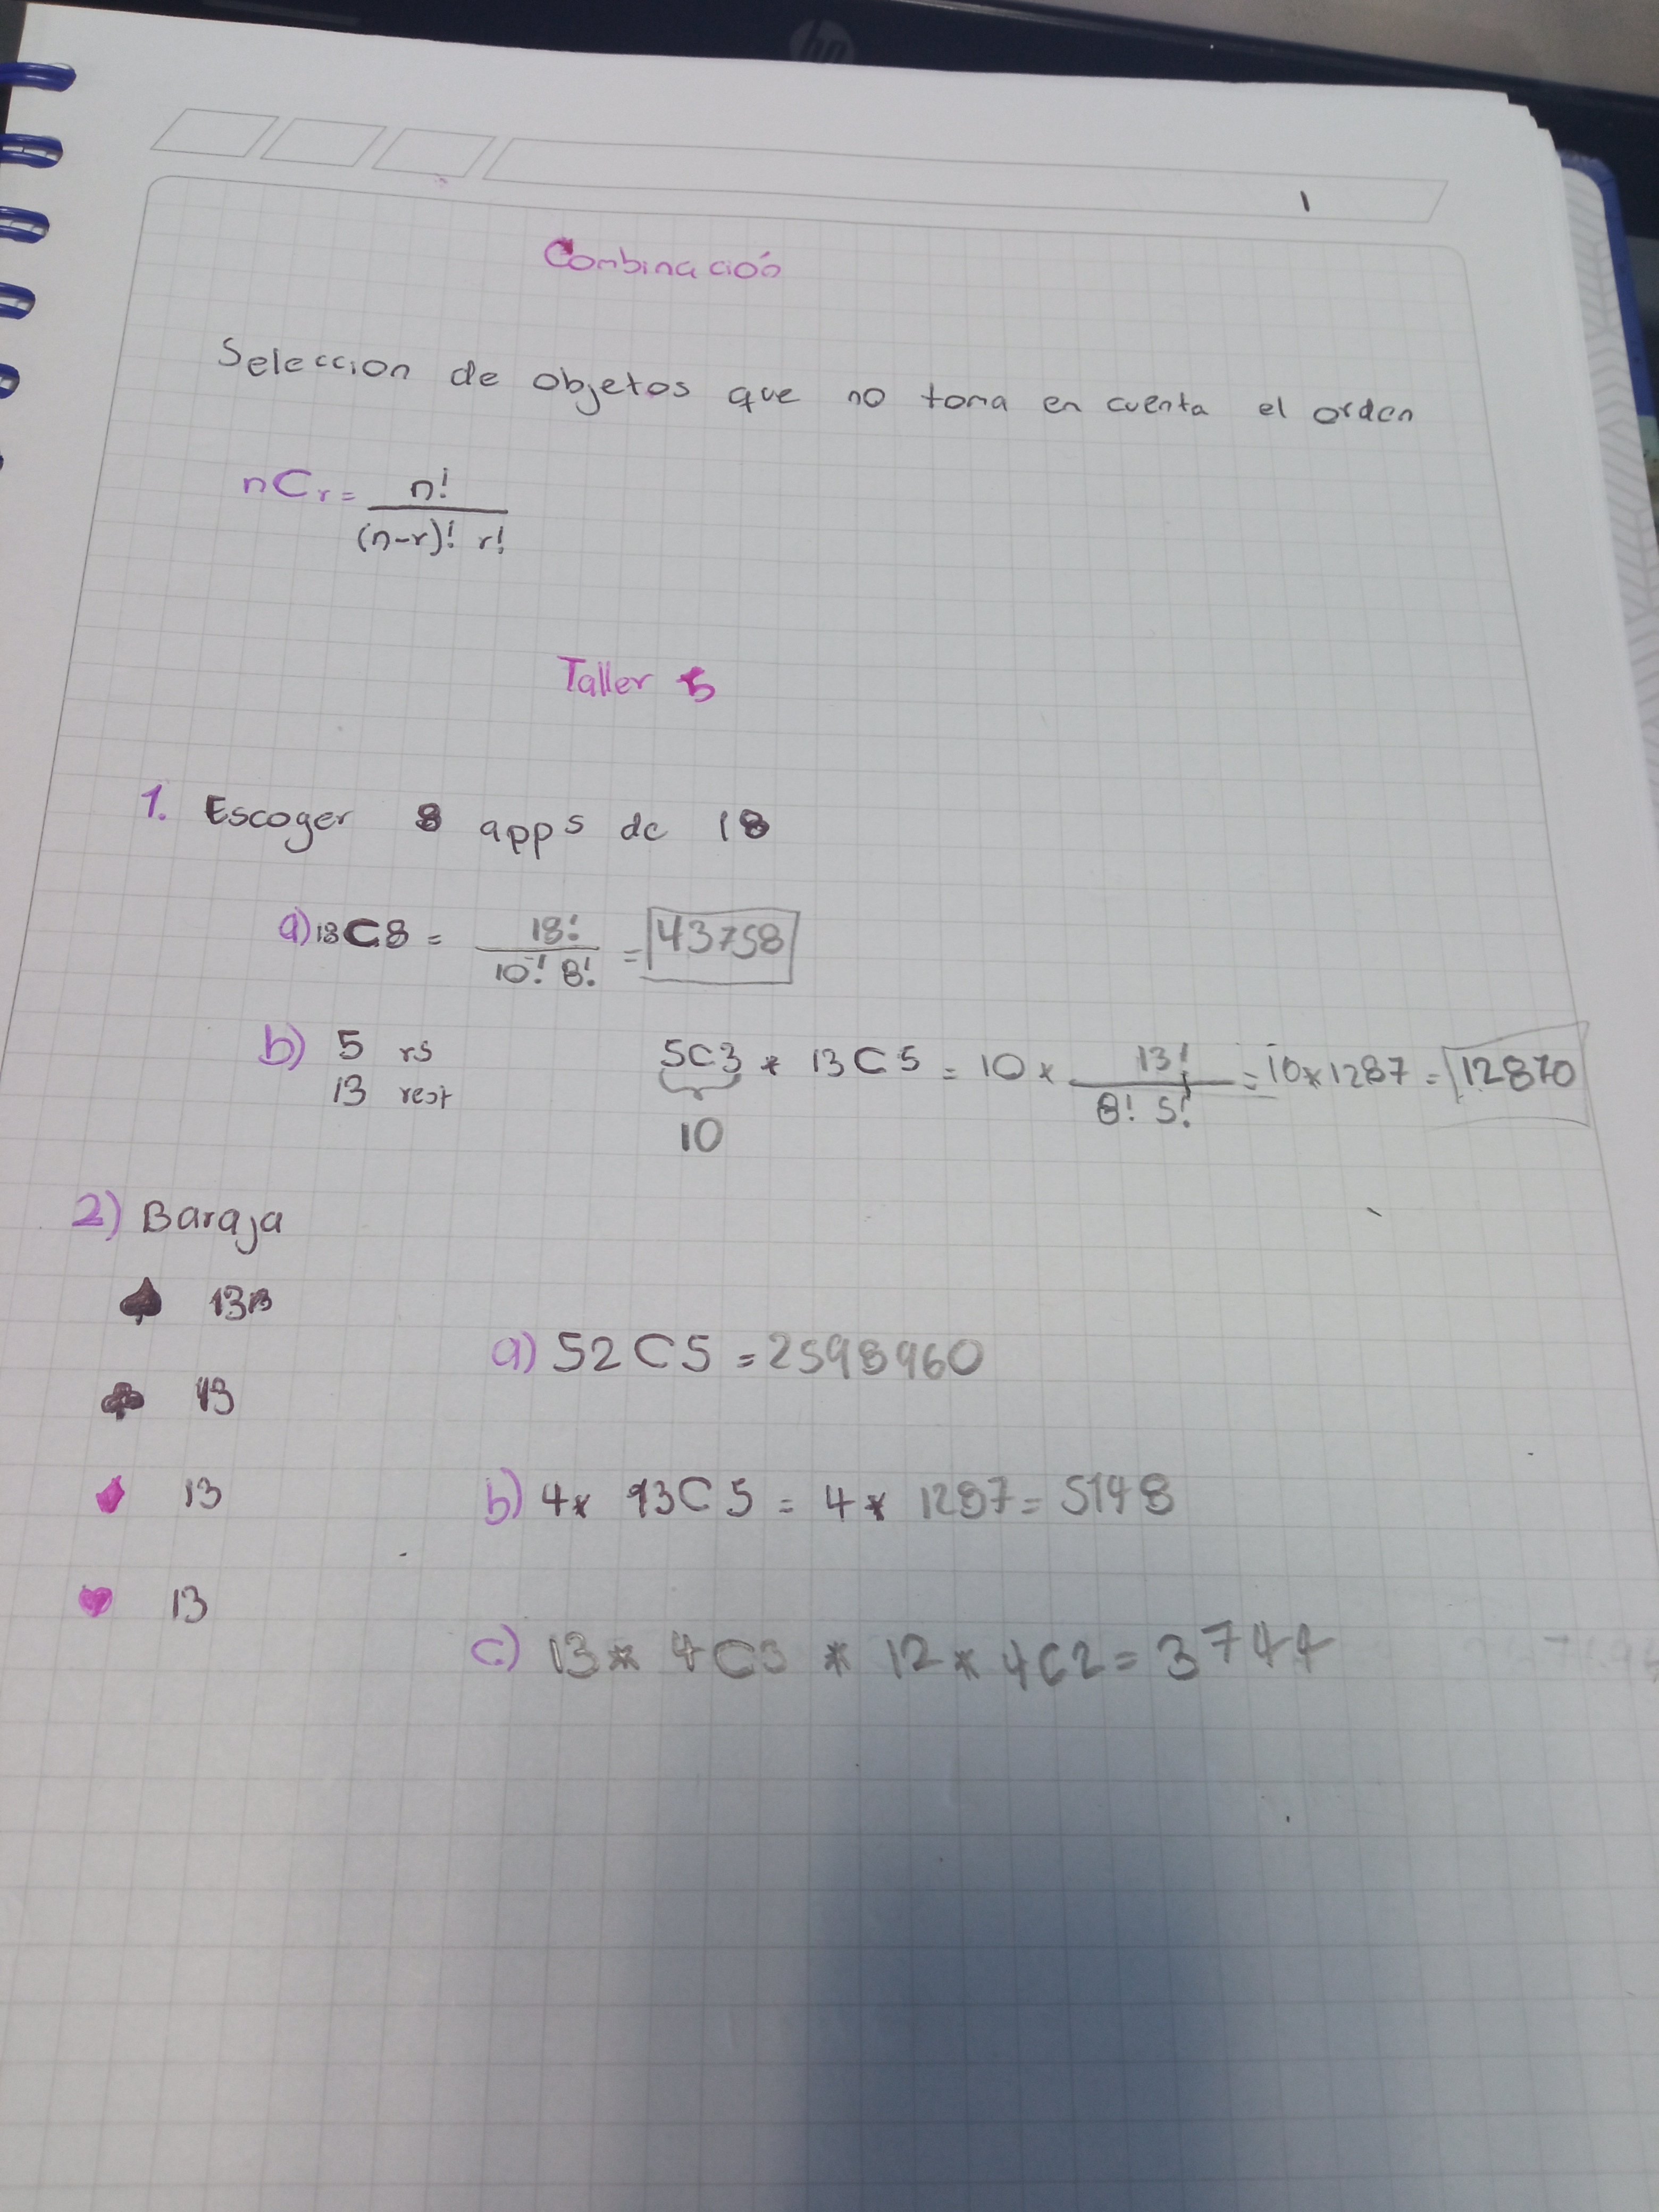 hp
1
Combinación
Seleccion de objetos que no toma en cuenta el orden
nCr = n!
(n-r)! r!
Taller 5
1. Escoger 8 apps de 18
a) 18C8 = 18! = 43758
10! 8!
b) 5 rs 5C3 * 13C5 = 10 * 13! = 10*1287 = 12870
13 rest 8! 5!
10
2) Baraja
♠ 13
a) 52C5 = 2598960
♣ 13
♦ 13 b) 4* 13C5 = 4* 1287 = 5148
♥ 13
c) 13* 4C3 * 12* 4C2 = 3744